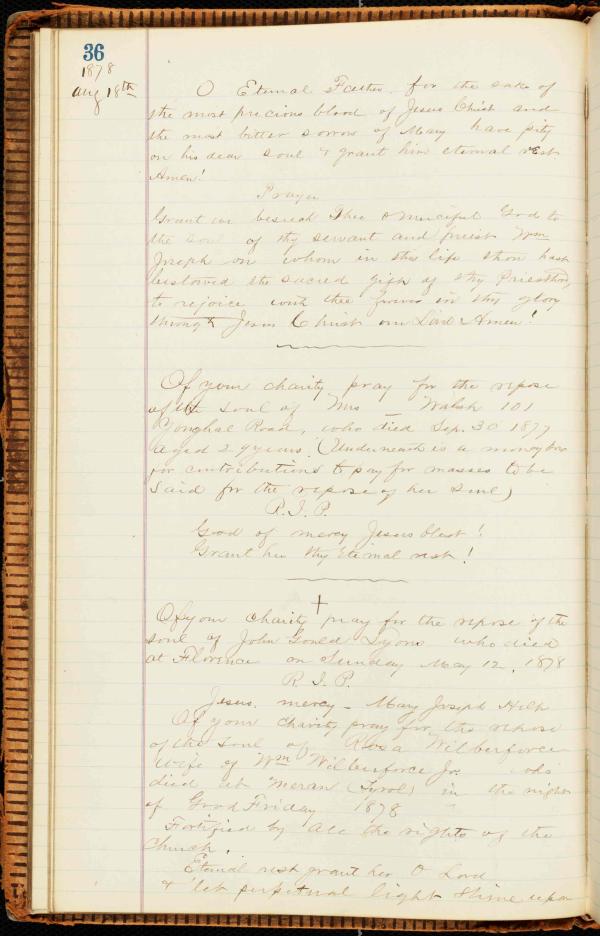 36
1878
Aug 18th
O Eternal Father, for the sake of
the most precious blood of Jesus Christ and
the most bitter sorrow of Mary have pity
on his dear soul & grant him eternal rest
Amen!
Prayer
Grant we beseech Thee O merciful God to
the soul of thy servant and priest Wm
Joseph on whom in this life thou hast
bestowed the sacred gift of thy Priesthood
to rejoice with thee in thy glory
through Jesus Christ our Lord Amen!
Of your charity pray for the repose
of the soul of Mrs _ Walsh 101
Yonghal Road, who died Sep. 30 1877
aged 29 years. (Underneath is a moneybox
for contributions to pay for masses to be
said for the repose of her soul)
R.I.P.
God of mercy Jesus blest!
Grant her thy Eternal rest!
†
Of your charity pray for the repose of the
soul of John Gould Lyons who died
at Florence on Sunday May 12, 1878
R.I.P.
Jesus. mercy - Mary Joseph Help
Of your charity pray for the repose
of the soul of Rosa Wilberforce
wife of Wm Wilberforce Jr. who
died at Meran (Tyrol) in the night
of Good Friday 1878
Fortified by all the rights of the
Church.
Eternal rest grant her O Lord
& let perpetual light shine upon